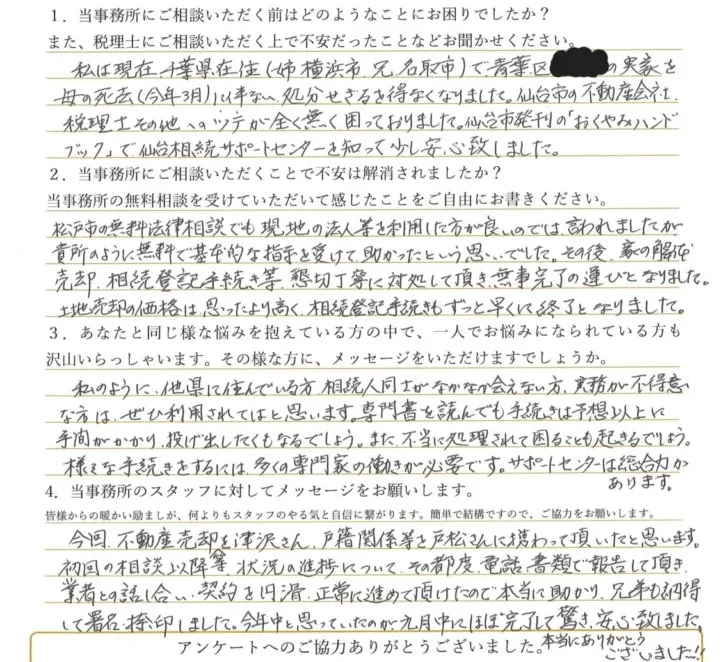 1．当事務所にご相談いただく前はどのようなことにお困りでしたか？
また、税理士にご相談いただく上で不安だったことなどお聞かせください。
私は現在、千葉県在住(姉 横浜市、兄 名取市)で青葉区の実家を
母の死去(今年3月)に伴ない、処分せざるを得なくなりました。仙台市の不動産会社、
税理士その他へのツテが全く無く困っておりました。仙台市発刊の「おくやみハンド
ブック」で仙台相続サポートセンターを知って少し安心致しました。
2．当事務所にご相談いただくことで不安は解消されましたか？
当事務所の無料相談を受けていただいて感じたことをご自由にお書きください。
松戸市の無料法律相談でも現地の法人等を利用した方が良いのでは、言われましたが
貴所のように無料で基本的な指示を受けて助かったという思いでした。その後、家の解体
売却、相続登記手続き等、懇切丁寧に対処して頂き、無事完了の運びとなりました。
土地売却の価格は思ったより高く、相続登記手続きもずっと早くに終了となりました。
3．あなたと同じ様な悩みを抱えている方の中で、一人でお悩みになられている方も
沢山いらっしゃいます。その様な方に、メッセージをいただけますでしょうか。
私のように、他県に住んでいる方、相続人同士がなかなか会えない方、実務が不得意
な方は、ぜひ利用されてはと思います。専門書を読んでも手続きは予想以上に
手間がかかり、投げ出したくもなるでしょう。また、不当に処理されて困ることも起きるでしょう。
様々な手続きをするには、多くの専門家の働きが必要です。サポートセンターは総合力が
あります。
4．当事務所のスタッフに対してメッセージをお願いします。
皆様からの暖かい励ましが、何よりもスタッフのやる気と自信に繋がります。簡単で結構ですので、ご協力をお願いします。
今回、不動産売却を津沢さん、戸籍関係等を戸松さんに携わって頂いたと思います。
初回の相談以降、等、状況の進捗について、その都度、電話、書類で報告して頂き、
業者との話し合い、契約を円滑、正常に進めて頂けたので本当に助かり、兄弟も納得
して署名・捺印しました。今年中と思っていたのが九月中にほぼ完了して驚き、安心致しました。
本当にありがとう
ございました!!
アンケートへのご協力ありがとうございました。